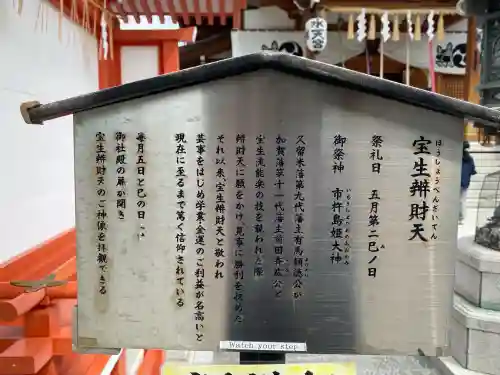 水天宮
宝生辨財天
ほうしょうべんざいてん
祭礼日 五月第二巳ノ日
御祭神 市杵島姫大神
いちきしまひめのおおかみ
久留米藩第九代藩主有馬頼徳公が
加賀藩第十一代藩主前田斉広公と
宝生流能楽の技を競われた際
辨財天に願をかけ見事に勝利を収めた
それ以来宝生辨財天と敬われ
芸事をはじめ学業・金運のご利益が名高いと
現在に至るまで篤く信仰されている
毎月五日と巳の日に
御社殿の扉が開き
宝生辨財天のご神像を拝観できる
Watch your step